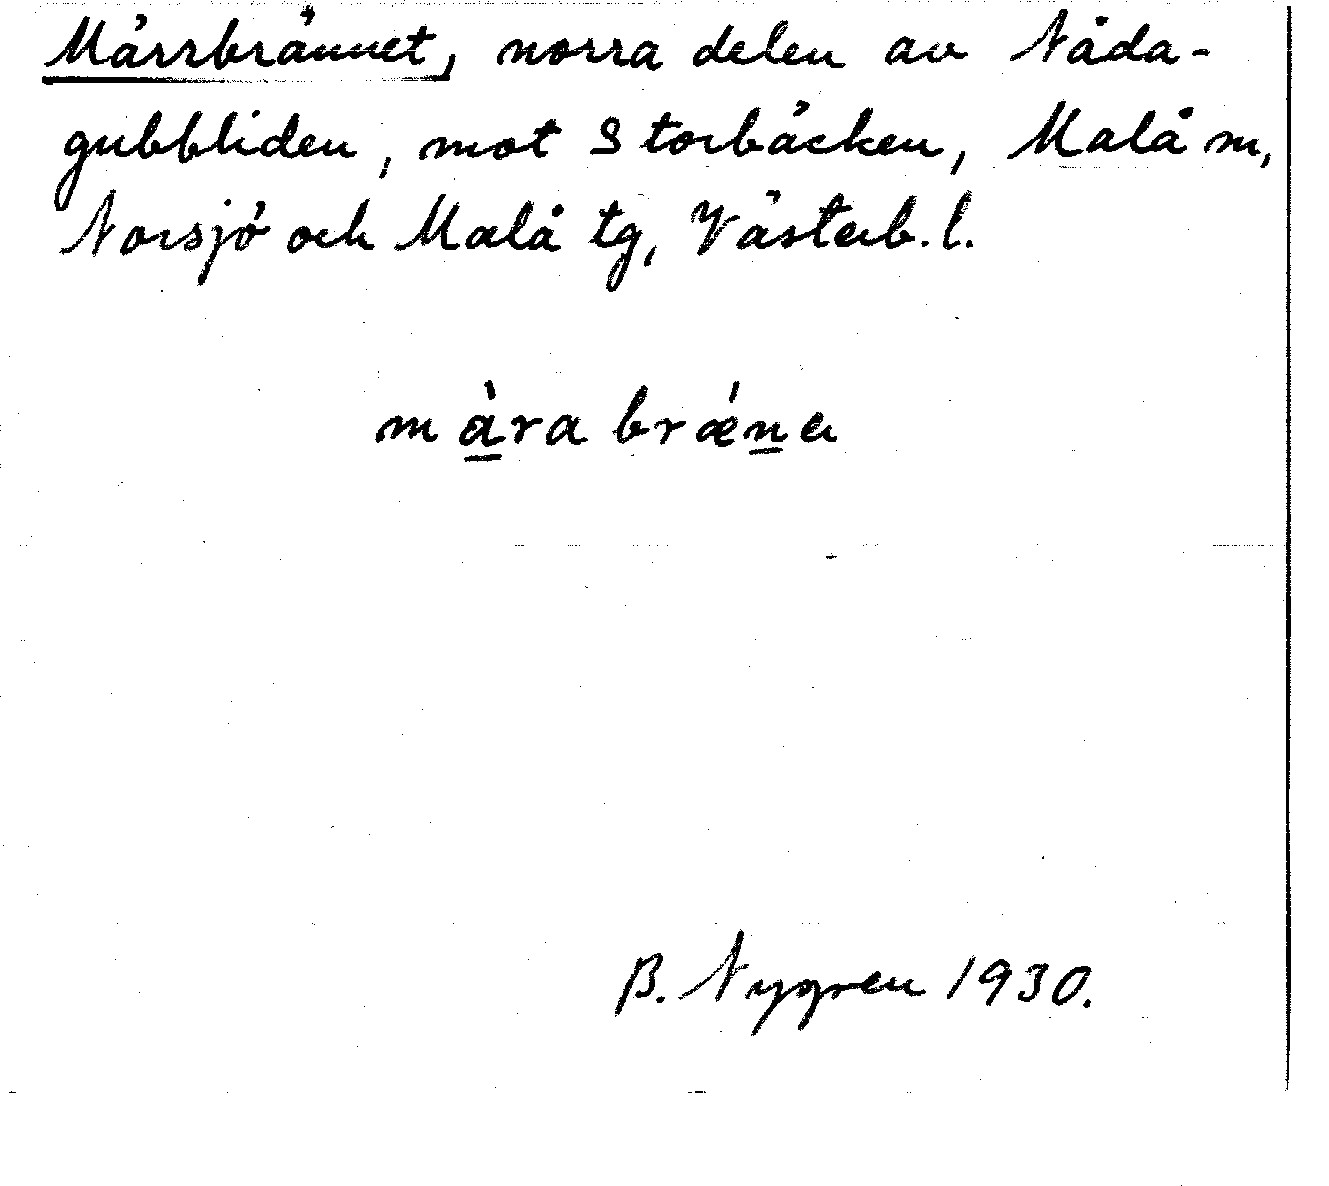 Märrbrännet, norra delen av Nåda-
gubbliden, mot Storbäcken, Malå sn,
Norsjö och Malå tg, Västerb. l.
mà̱ra brǽṉa
B. Nygren 1930.